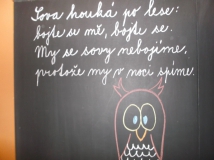 Sova houká po lese:
bojte se mě, bojte se.
My se sovy nebojíme,
protože my v noci spíme.